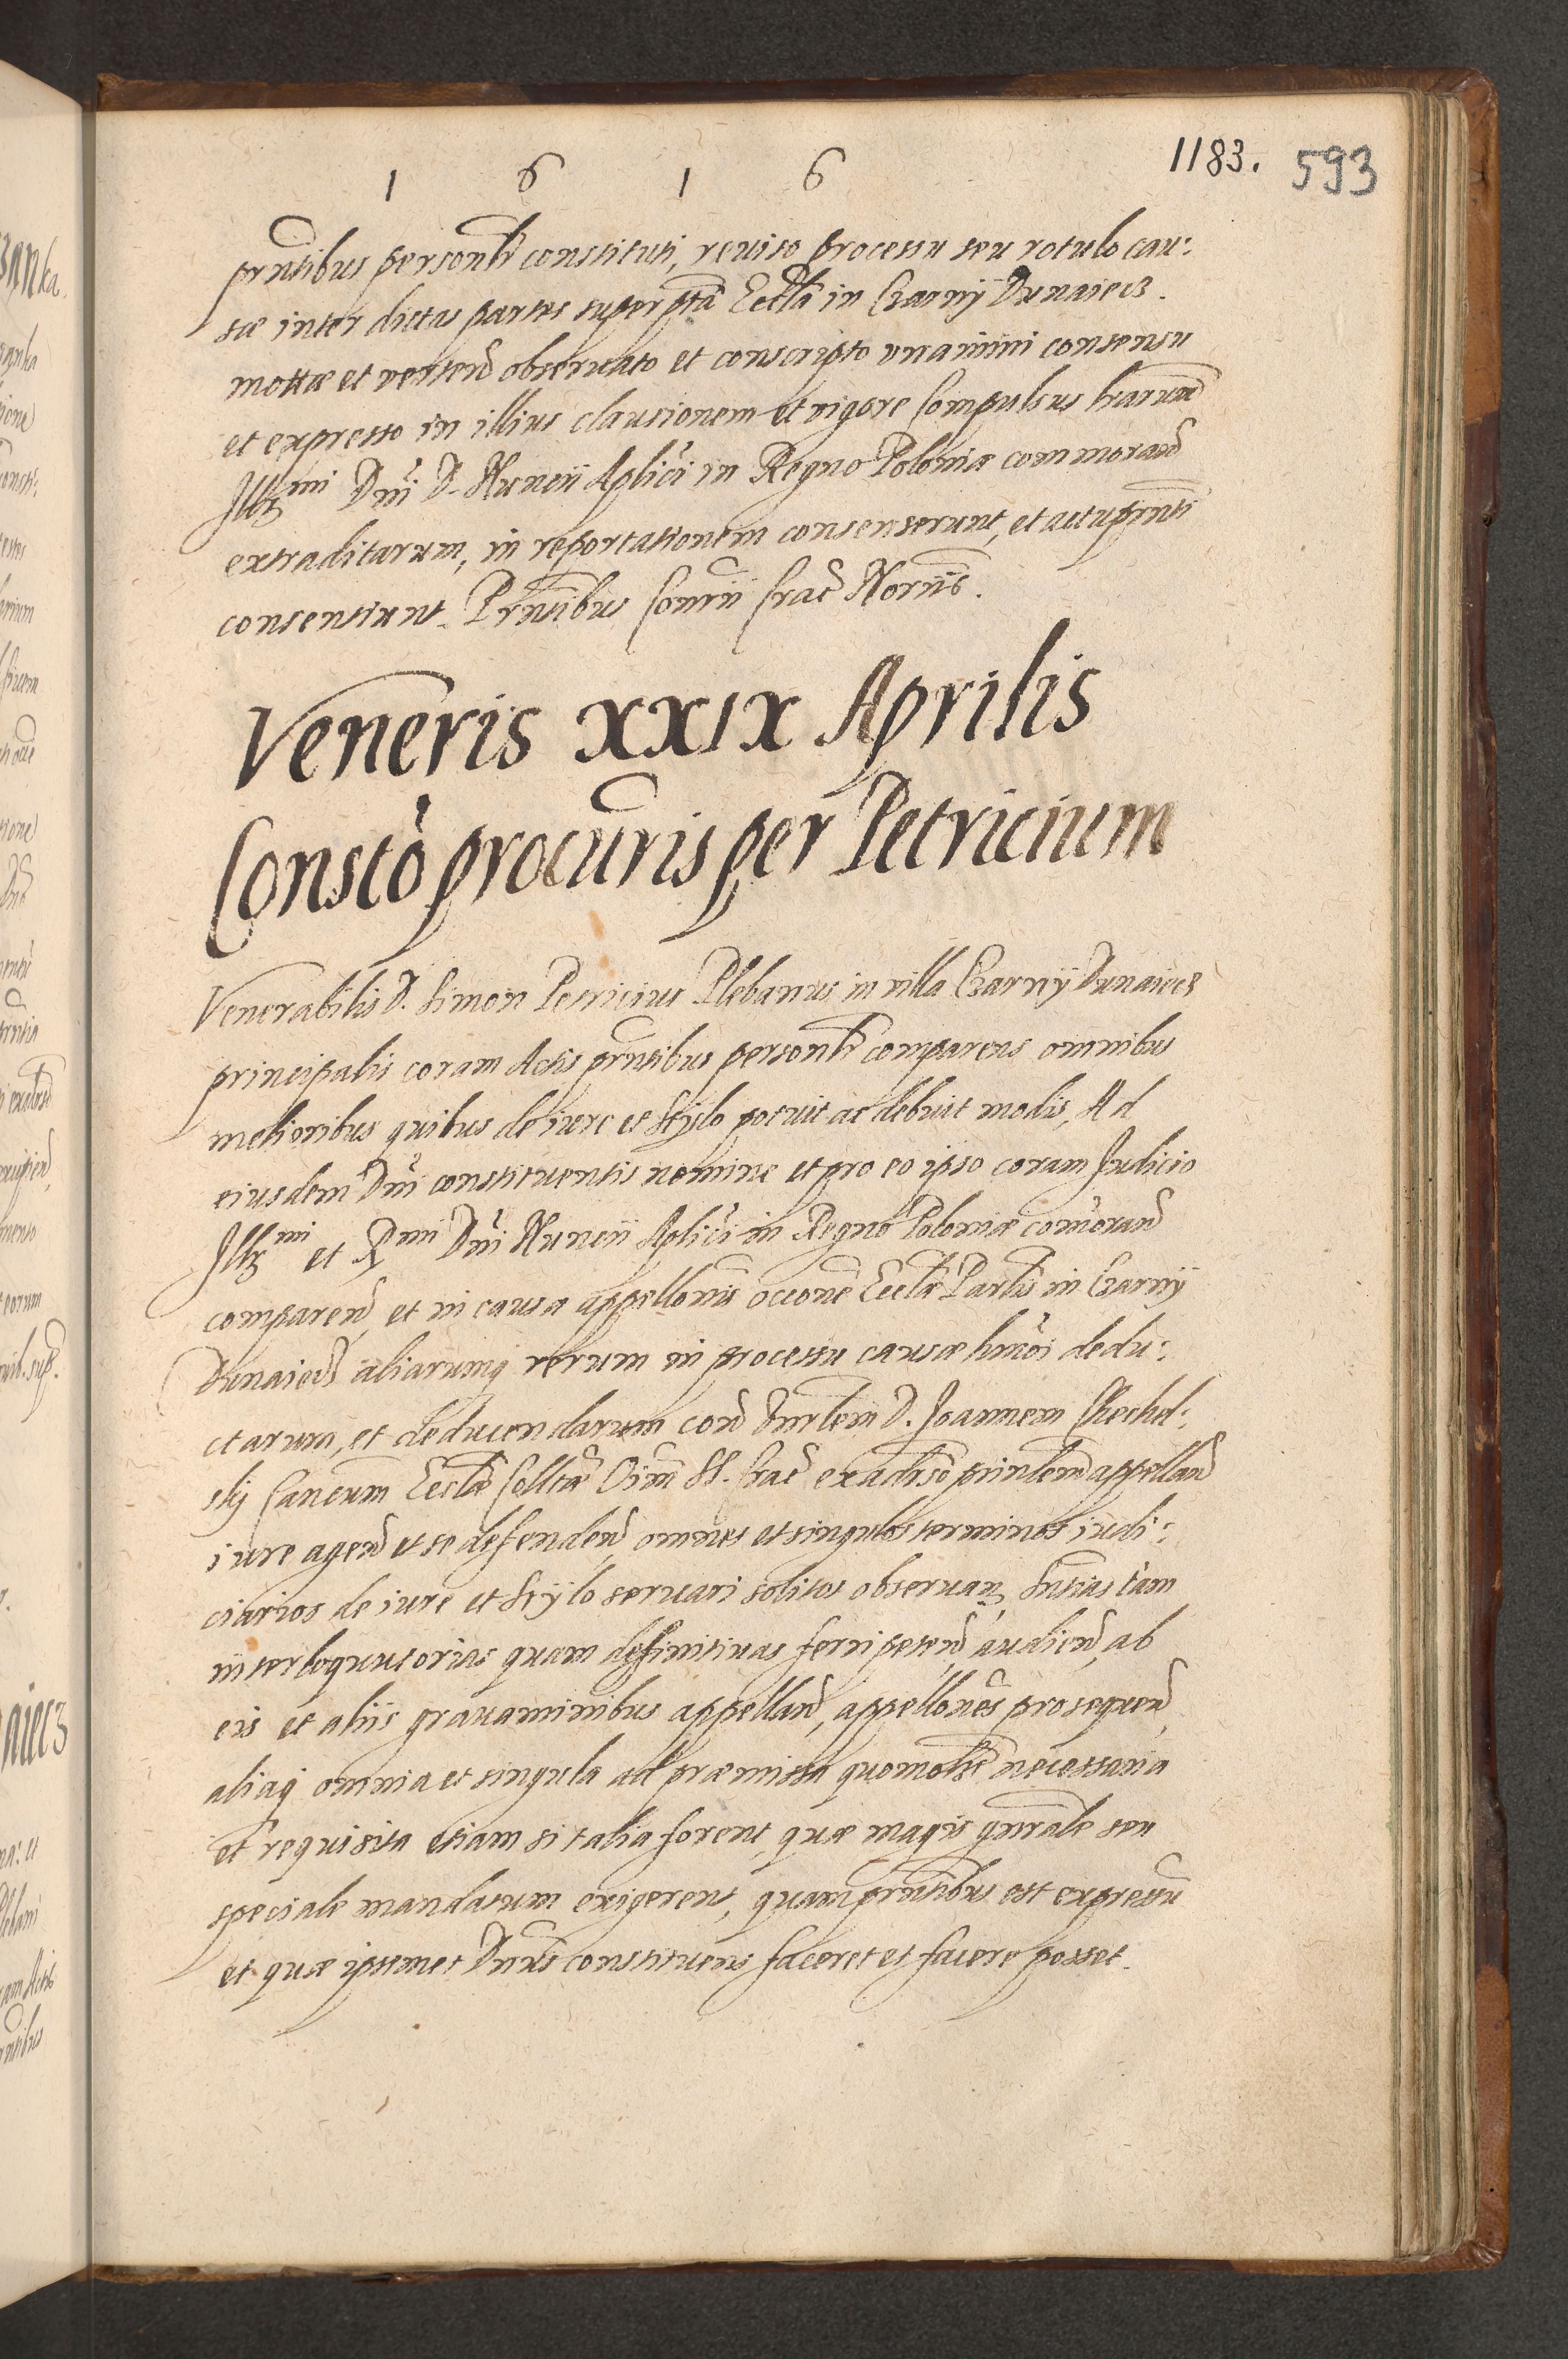 1 6 1 6
1183. 593
prntibus personlr constituti, reuiso processu seu rotulo cau:
sæ inter dictas partes super ptā Eccla in Czarny Dunaiecz.
mottæ et vertend obseruato et conscripto vnanimi consensu
et expresso in illius clausionem et vigore Compulsus lrarum
Illmi Dni D. Nuncii Aplici in Regno Poloniæ commorand
extraditarum, in reportationem consenserunt, et actu prnti
consentiunt. Prntibus Coninii Crac Noriis.
Veneris XXIX Aprilis
Consto procuris per Petricium
Venerabilis D. Simon Petricius Plebanus in villa Czarny Dunaiecz
principalis coram Actis prntibus personlr comparens omnibus
melioribus quibus de iure et stylo potuit ac debuit modis, Ad
eiusdem Dni constituentis nomine et pro eo ipso coram Judicio
Illmi et Rmi Dni Nuncii Aplici in Regno Poloniæ comorand
comparend, et in causa appellonis occone Ecclæ Parlis in Czarny
Dunaiecz aliarumq rerum in processu causæ hmoi dedu:
ctarum, et deducendarum con D. Joannem Chechel:
sky Cancum Ecclæ Colltæ Oim SS. Crac ex aduso prinlem appelland
iure agend et se defendend, omnes et singulos terminos iudi:
ciarios de iure et stylo seruari solitos obseruan, Sntias tam
interloquutorias quam definitiuas ferri petend, audiend, ab
eis et aliis grauaminibus appelland, appellones prosequend,
aliaq omnia et singula ad præmissa quomolbt necessaria
et requisita etiam si talia forent, quæ magis gnrale seu
speciale mandatum exigerent, quam prntibus est expressu
et quæ ipsemet Dnus constituens faceret et facere posset.